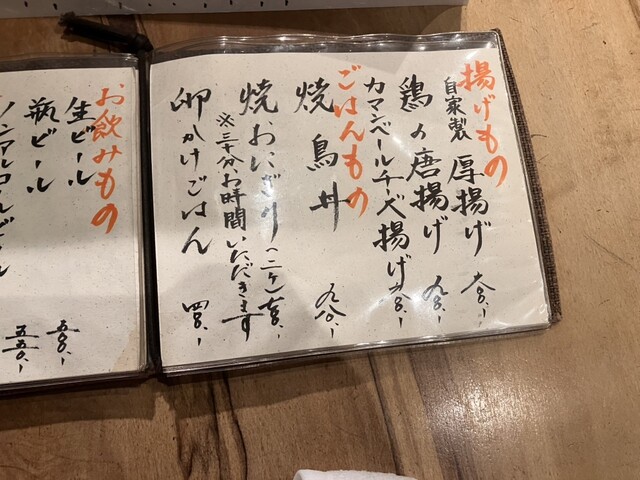 揚げもの
自家製 厚揚げ 六〇〇.-
鶏の唐揚げ 九〇〇.-
カマンベールチーズ揚げ 六〇〇.-
ごはんもの
焼鳥丼 九八〇.-
焼おにぎり(二ケ) 七〇〇.-
※三十分お時間いただきます
卵かけごはん 四〇〇.-
お飲みもの
生ビール 五〇〇.-
瓶ビール 五五〇.-
ノンアルコールビール